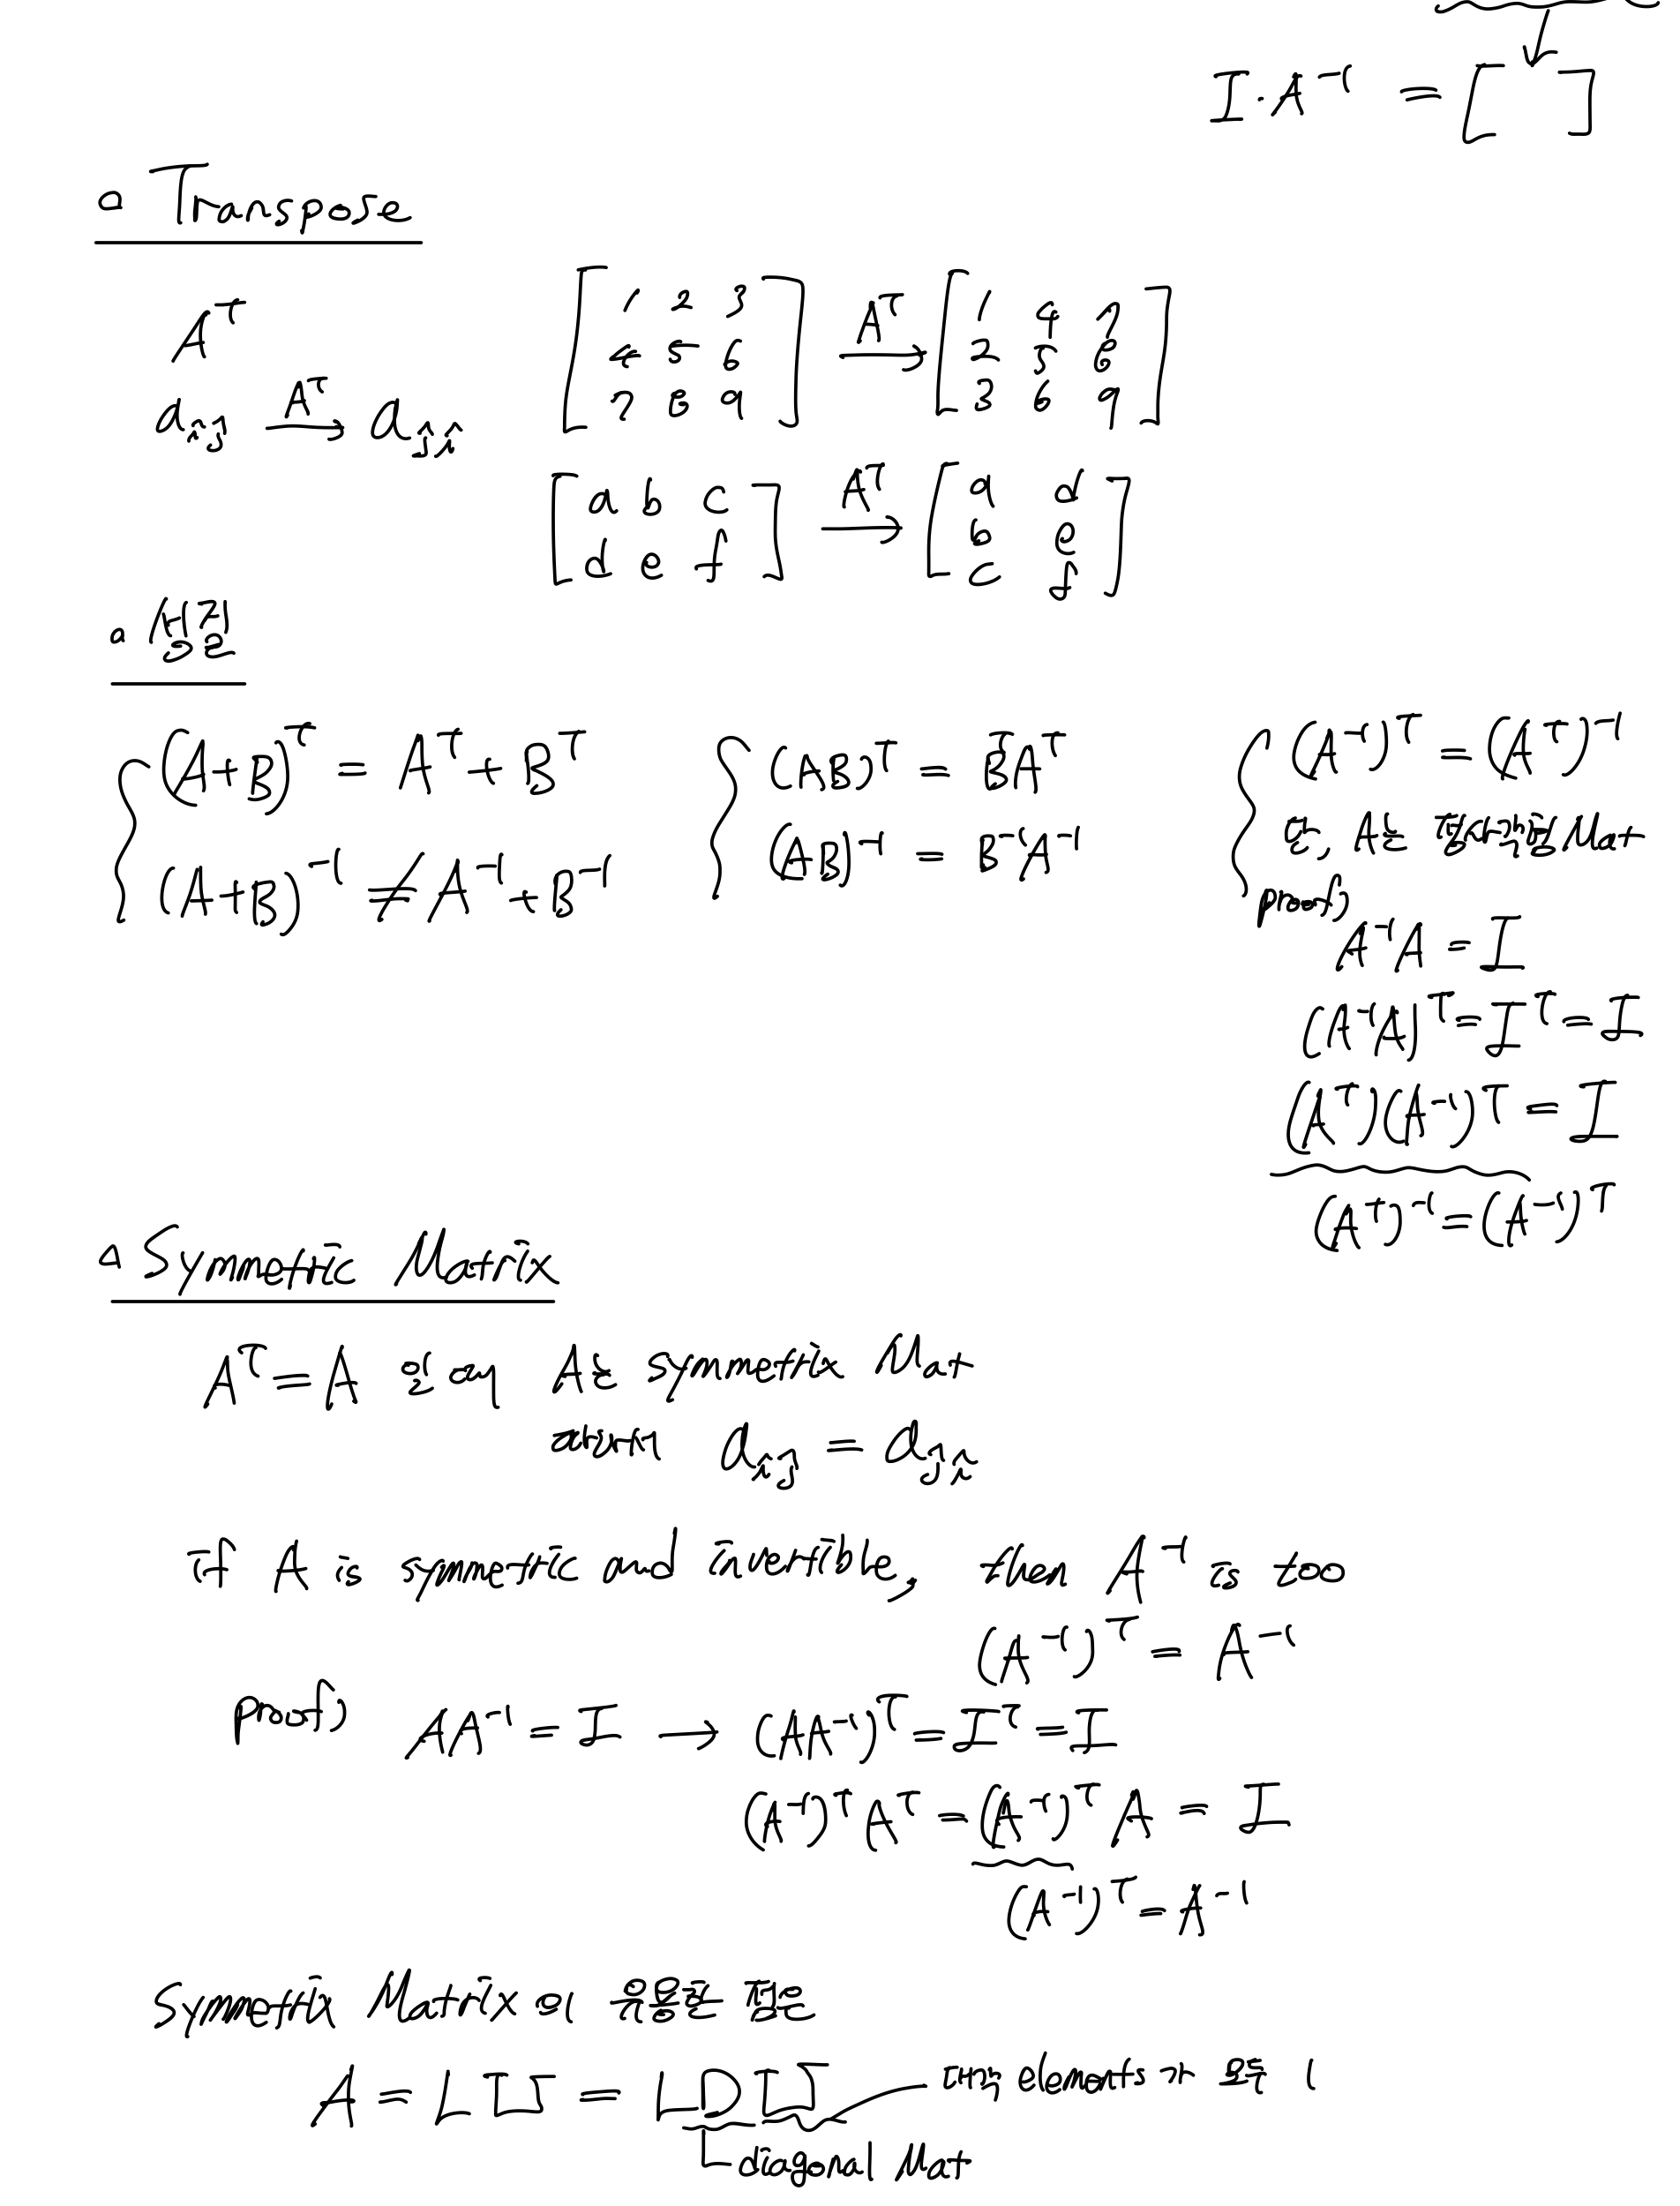 I·A⁻¹ = [ ]
Transpose
Aᵀ
aᵢⱼ →(Aᵀ) aⱼᵢ
[1 2 3
4 5 6
7 8 9] →(Aᵀ) [1 4 7
2 5 8
3 6 9]
[a b c
d e f] →(Aᵀ) [a d
b e
c f]
성질
(A+B)ᵀ = Aᵀ + Bᵀ
(A+B)⁻¹ ≠ A⁻¹ + B⁻¹
(AB)ᵀ = BᵀAᵀ
(AB)⁻¹ = B⁻¹A⁻¹
(A⁻¹)ᵀ = (Aᵀ)⁻¹
단, A는 정사각행렬 Mat
proof)
A⁻¹A = I
(A⁻¹A)ᵀ = Iᵀ = I
(Aᵀ)(A⁻¹)ᵀ = I
(Aᵀ)⁻¹ = (A⁻¹)ᵀ
Symmetric Matrix
Aᵀ = A 일 때 A는 symmetrix Mat
따라서 aᵢⱼ = aⱼᵢ
if A is symmetric and invertible, then A⁻¹ is too
(A⁻¹)ᵀ = A⁻¹
proof) AA⁻¹ = I → (AA⁻¹)ᵀ = Iᵀ = I
(A⁻¹)ᵀAᵀ = (A⁻¹)ᵀA = I
(A⁻¹)ᵀ = A⁻¹
Symmetrix Matrix의 유용한 점은
A = LU = LDU 대각 elements가 모두 1
diagonal Mat